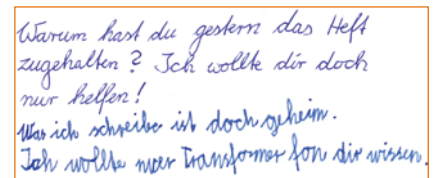 Warum hast du gestern das Heft
zugehalten? Ich wollte dir doch
nur helfen!
Was ich schreibe ist doch geheim.
Ich wollte nuer Transformer fon dir wissen.